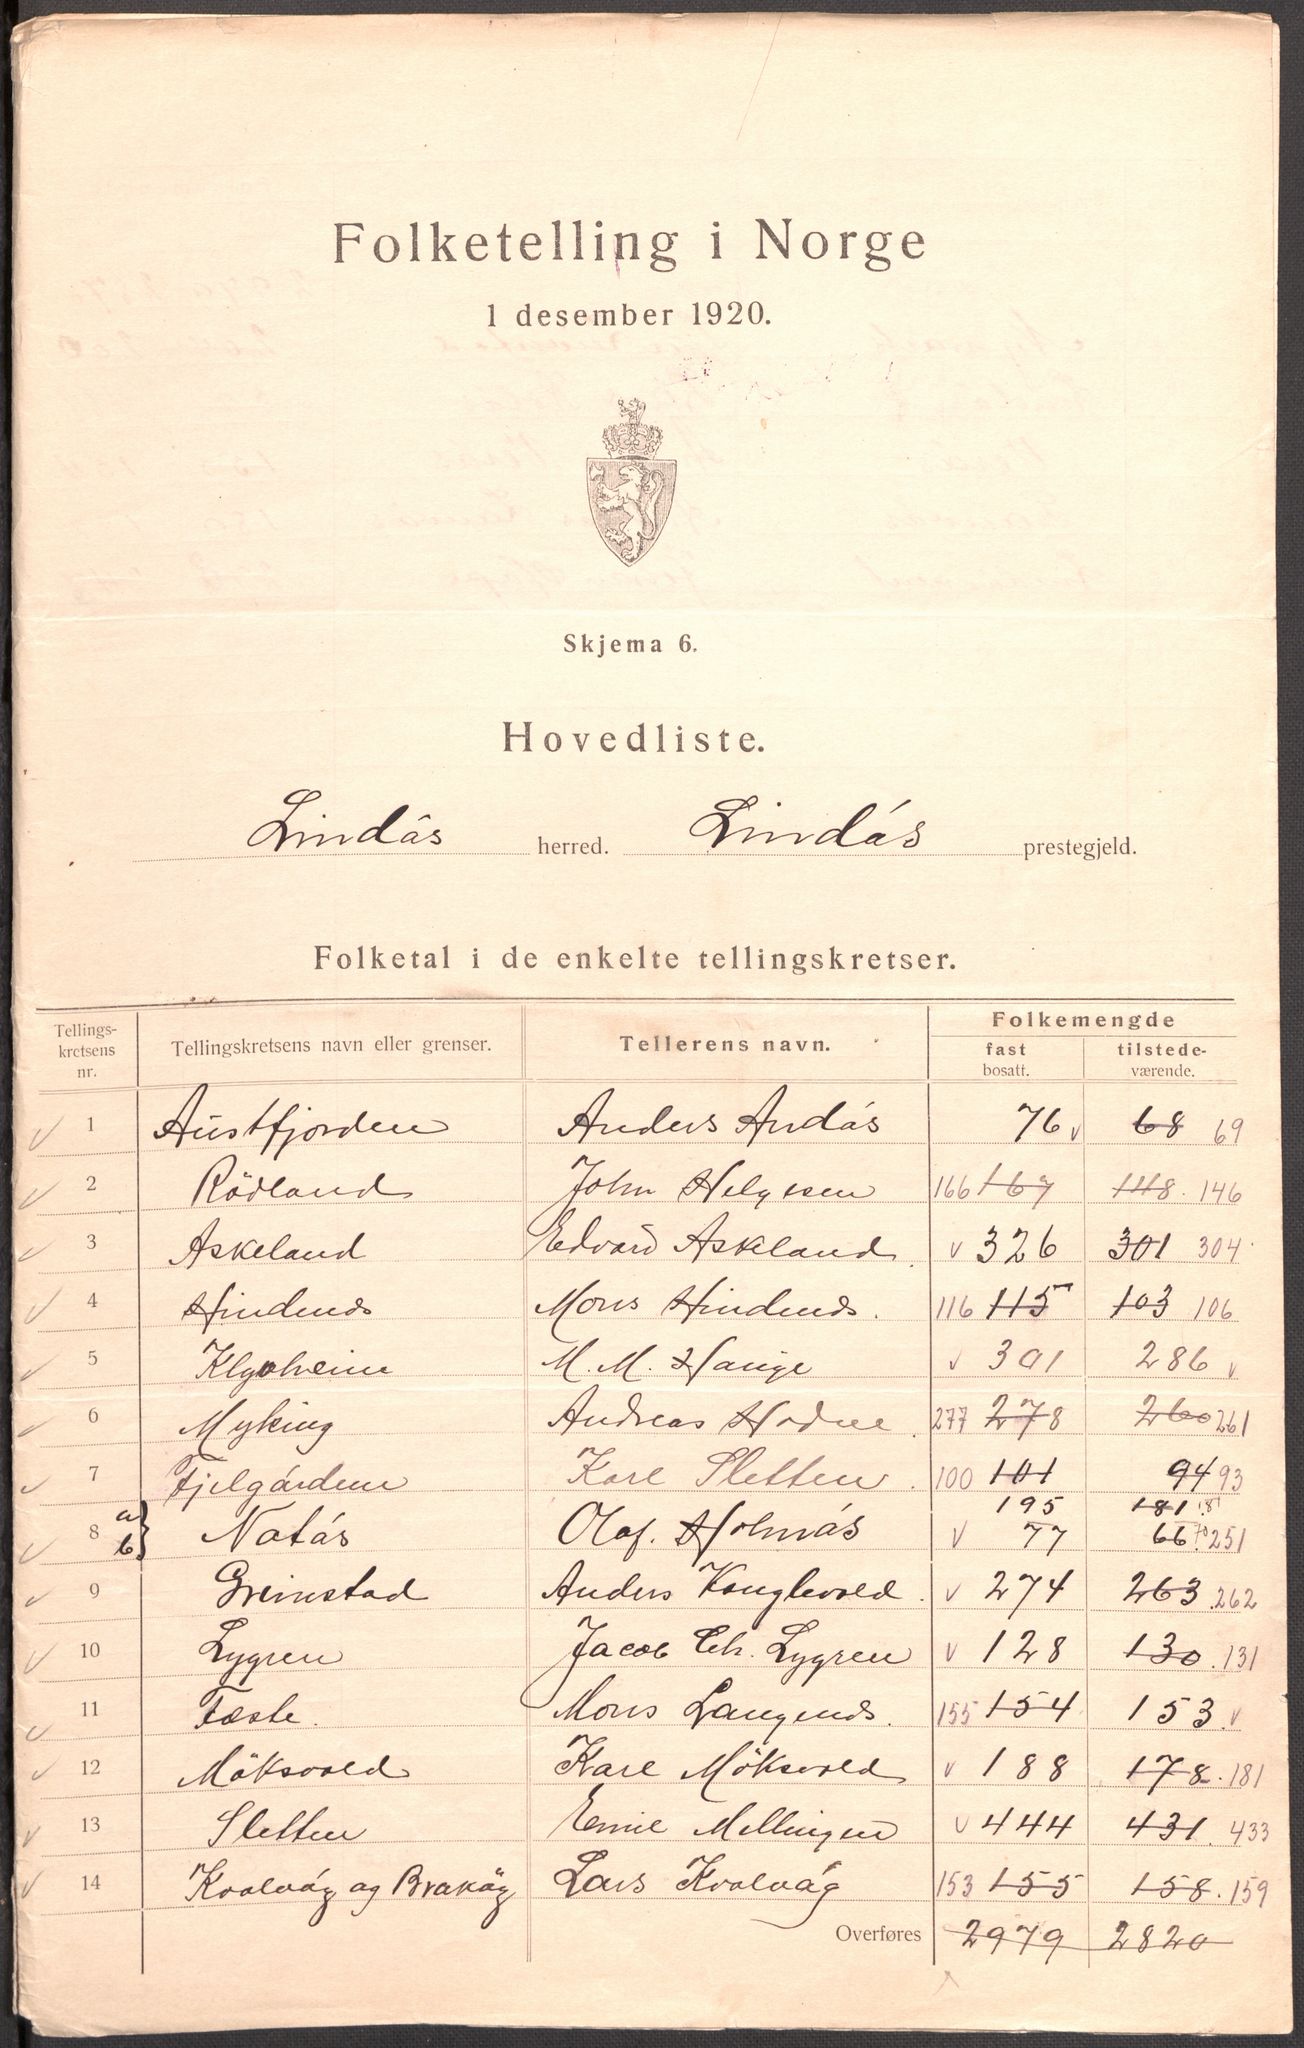 Folketelling i Norge
1 desember 1920.
Skjema 6.
Hovedliste.
Lindås herred. Lindås prestegjeld.
Folketal i de enkelte tellingskretser.
Tellings-kretsens nr. Tellingskretsens navn eller grenser. Tellerens navn. Folkemengde fast bosatt. tilstede-værende.
1 Austfjorden Anders Andås 76 v 68 69
2 Rödland John Helgesen 166 167 148. 146
3 Askeland Edvard Askeland. v 326 301 304
4 Hindenes Mons Hindenes. 116 115 103 106
5 Klyvheim M. M. Hauge v 301 286 v
6 Myking Andreas Hodne. 277 278 260 261
7 Fjelgårdene Karl Sletten. 100 101 94 93
8 a b } Natås Olaf. Holmås v 195 77 181 181 66 70 251
9 Greinstad Anders Konglevold. v 274 263. 262
10 Lygren Jacob Chr. Lygren v 128 130. 131
11 Fæste. Mons Langenes. 155 154 153. v
12 Möksvold Karl Möksvold v 188 178. 181
13 Sletten Emil Mellingen v 444 431. 433
14 Kvalvåg og Brakåg Lars Kvalvåg 153 155 158. 159
Overføres 2979 2820